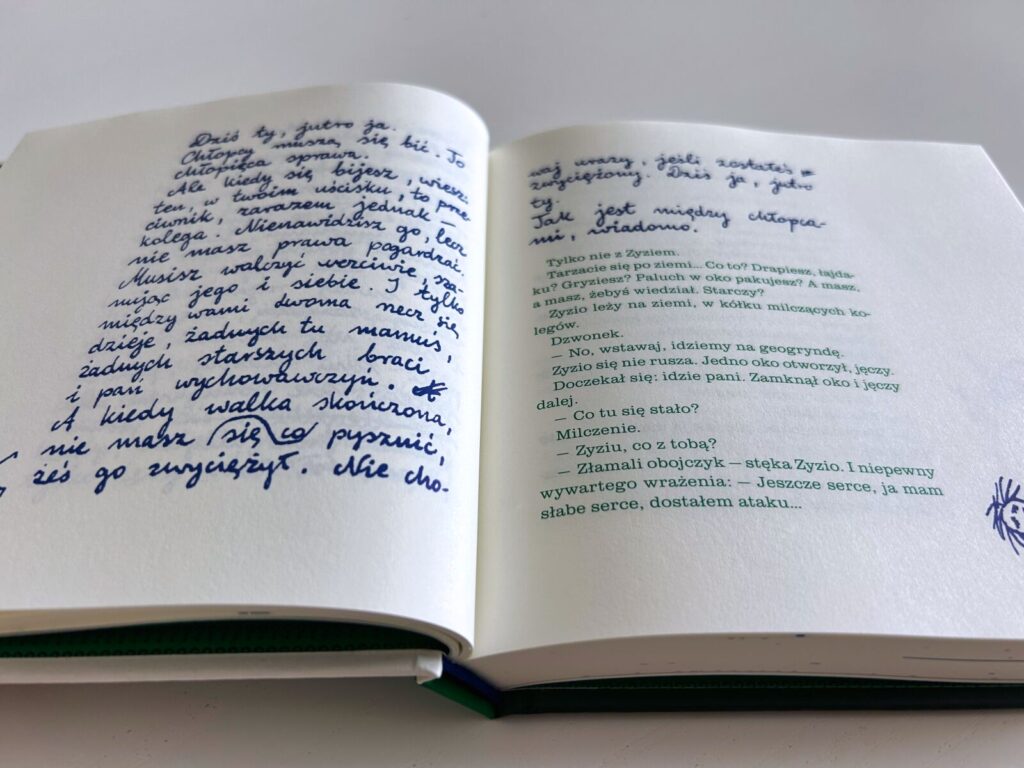 Dziś ty, jutro ja.
Chłopcy muszą się bić. To
chłopięca sprawa.
Ale kiedy się bijesz, wiesz:
ten, w twoim uścisku, to prze-
ciwnik, zarazem jednak —
kolega. Nienawidzisz go, lecz
nie masz prawa pogardzać.
Musisz walczyć uczciwie, sza-
nując jego i siebie. I tylko
między wami dwoma rzecz się
dzieje, żadnych tu mamuś,
żadnych starszych braci
i pań wychowawczyń.
A kiedy walka skończona,
nie masz się co pysznić,
żeś go zwyciężył. Nie cho-
waj urazy, jeśli zostałeś
zwyciężony. Dziś ja, jutro
ty.
Tak jest między chłopca-
mi, wiadomo.
Tylko nie z Zyziem.
Tarzacie się po ziemi... Co to? Drapiesz, łajda-
ku? Gryziesz? Paluch w oko pakujesz? A masz,
a masz, żebyś wiedział. Starczy?
Zyzio leży na ziemi, w kółku milczących ko-
legów.
Dzwonek.
— No, wstawaj, idziemy na geogryndę.
Zyzio się nie rusza. Jedno oko otworzył, jęczy.
Doczekał się: idzie pani. Zamknął oko i jęczy
dalej.
— Co tu się stało?
Milczenie.
— Zyziu, co z tobą?
— Złamali obojczyk — stęka Zyzio. I niepewny
wywartego wrażenia: — Jeszcze serce, ja mam
słabe serce, dostałem ataku...